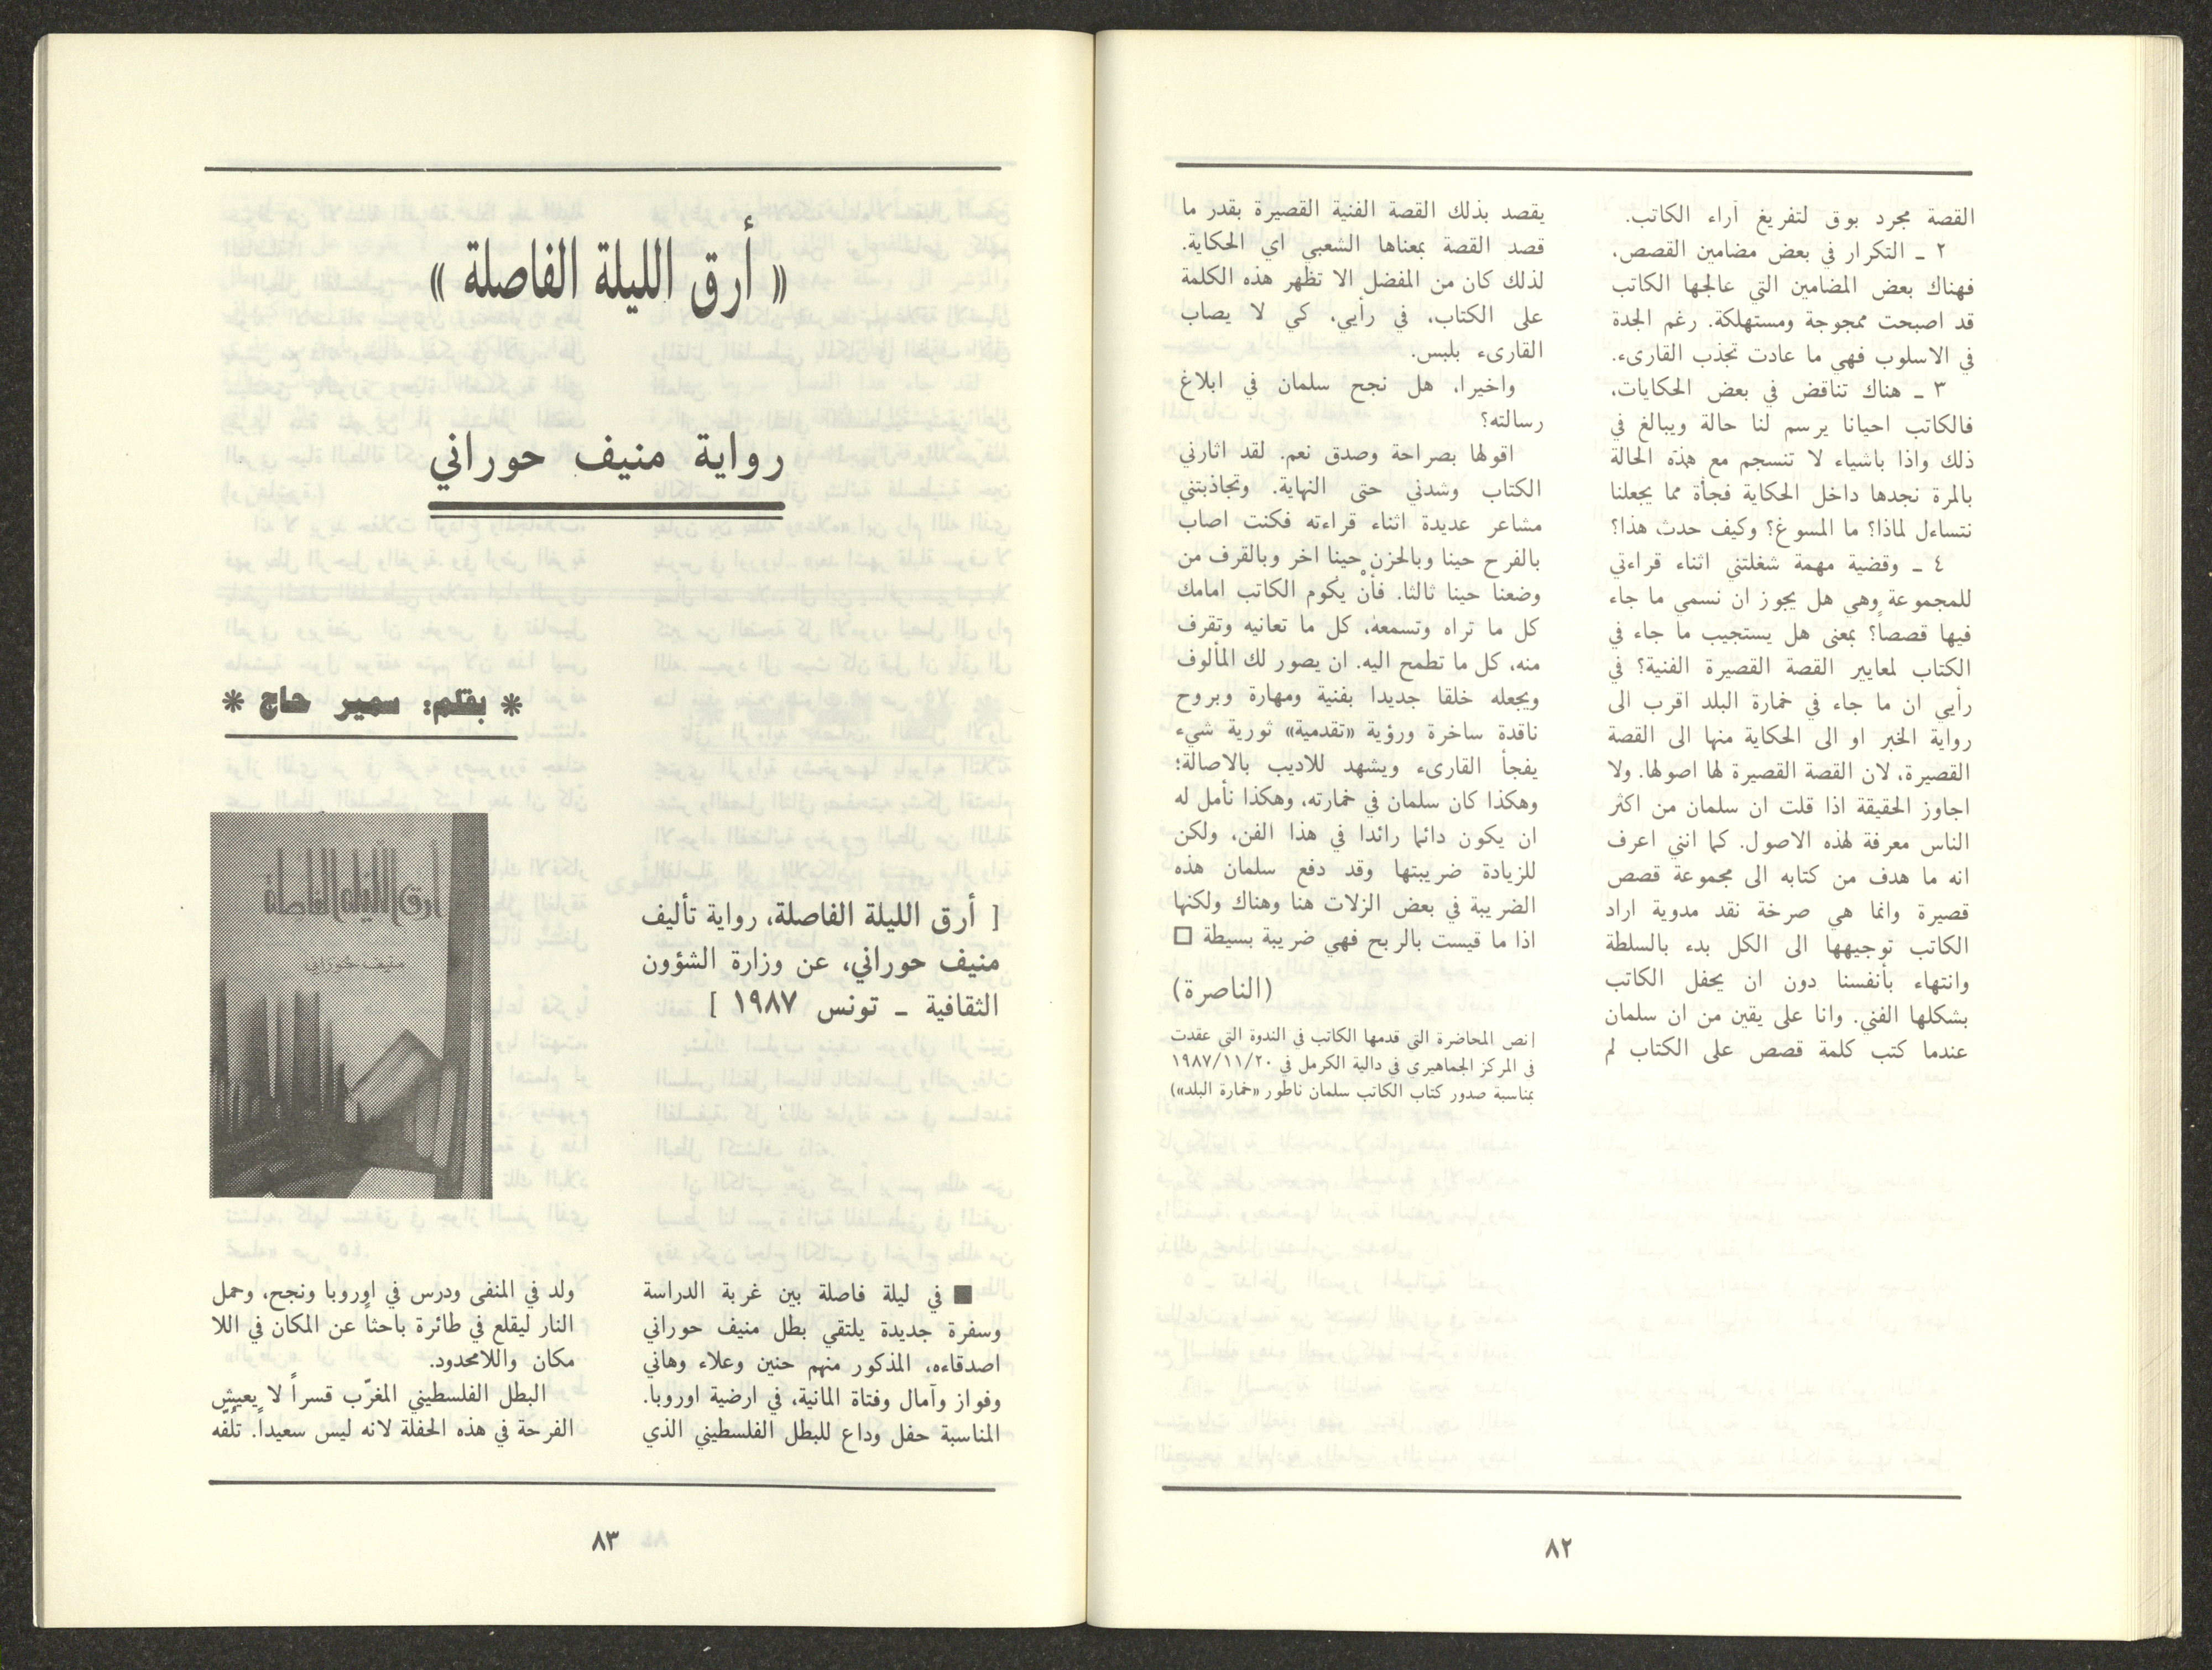 القصة مجرد بوق لتفريغ آراء الكاتب.
٢ ـ التكرار في بعض مضامين القصص.
فهناك بعض المضامين التي عالجها الكاتب
قد اصبحت ممجوجة ومستهلكة. رغم الجدة
في الاسلوب فهي ما عادت تجذب القارىء.
٣ ـ هناك تناقض في بعض الحكايات،
فالكاتب احيانا يرسم لنا حالة ويبالغ في
ذلك واذا باشياء لا تنسجم مع هذه الحالة
بالمرة نجدها داخل الحكاية فجأة مما يجعلنا
نتساءل لماذا؟ ما المسوغ؟ وكيف حدث هذا؟
٤ ـ وقضية مهمة شغلتني اثناء قراءتي
للمجموعة وهي هل يجوز ان نسمي ما جاء
فيها قصصاً؟ بمعنى هل يستجيب ما جاء في
الكتاب لمعايير القصة القصيرة الفنية؟ في
رأيي ان ما جاء في خمارة البلد اقرب الى
رواية الخبر او الى الحكاية منها الى القصة
القصيرة، لان القصة القصيرة لها اصولها. ولا
اجاوز الحقيقة اذا قلت ان سلمان من اكثر
الناس معرفة لهذه الاصول. كما انني اعرف
انه ما هدف من كتابه الى مجموعة قصص
قصيرة وانما هي صرخة نقد مدوية اراد
الكاتب توجيهها الى الكل بدء بالسلطة
وانتهاء بأنفسنا دون ان يحفل الكاتب
بشكلها الفني. وانا على يقين من ان سلمان
عندما كتب كلمة قصص على الكتاب لم
يقصد بذلك القصة الفنية القصيرة بقدر ما
قصد القصة بمعناها الشعبي اي الحكاية.
لذلك كان من المفضل الا تظهر هذه الكلمة
على الكتاب، في رأيي، كي لا يصاب
القارىء بلبس.
واخيرا، هل نجح سلمان في ابلاغ
رسالته؟
اقولها بصراحة وصدق نعم. لقد اثارني
الكتاب وشدني حتى النهاية. وتجاذبتني
مشاعر عديدة اثناء قراءته فكنت اصاب
بالفرح حينا وبالحزن حينا اخر وبالقرف من
وضعنا حينا ثالثا. فأنْ يكوم الكاتب امامك
كل ما تراه وتسمعه، كل ما تعانيه وتقرف
منه، كل ما تطمح اليه. ان يصور لك المألوف
ويجعله خلقا جديدا بفنية ومهارة وبروح
ناقدة ساخرة ورؤية «تقدمية» ثورية شيء
يفجأ القارىء ويشهد للاديب بالاصالة؛
وهكذا كان سلمان في خمارته، وهكذا نأمل له
ان يكون دائما رائدا في هذا الفن، ولكن
للزيادة ضريبتها وقد دفع سلمان هذه
الضريبة في بعض الزلات هنا وهناك ولكنها
اذا ما قيست بالربح فهي ضريبة بسيطة □
(الناصرة)
[نص المحاضرة التي قدمها الكاتب في الندوة التي عقدت
في المركز الجماهيري في دالية الكرمل في ١٩٨٧/١١/٢٠
بمناسبة صدور كتاب الكاتب سلمان ناطور «خمارة البلد»)
٨٢
« أرق الليلة الفاصلة »
رواية منيف حوراني
* بقلم: سمير حاج *
أرق الليلة الفاصلة
منيف حوراني
[ أرق الليلة الفاصلة، رواية تأليف
منيف حوراني، عن وزارة الشؤون
الثقافية ـ تونس ١٩٨٧ ]
■ في ليلة فاصلة بين غربة الدراسة
وسفرة جديدة يلتقي بطل منيف حوراني
اصدقاءه، المذكور منهم حنين وعلاء وهاني
وفواز وآمال وفتاة المانية، في ارضية اوروبا.
المناسبة حفل وداع للبطل الفلسطيني الذي
ولد في المنفى ودرس في اوروبا ونجح، وحمل
النار ليقلع في طائرة باحثاً عن المكان في اللا
مكان واللامحدود.
البطل الفلسطيني المغرّب قسراً لا يعيش
الفرحة في هذه الحفلة لانه ليس سعيداً. تلُفّه
٨٣